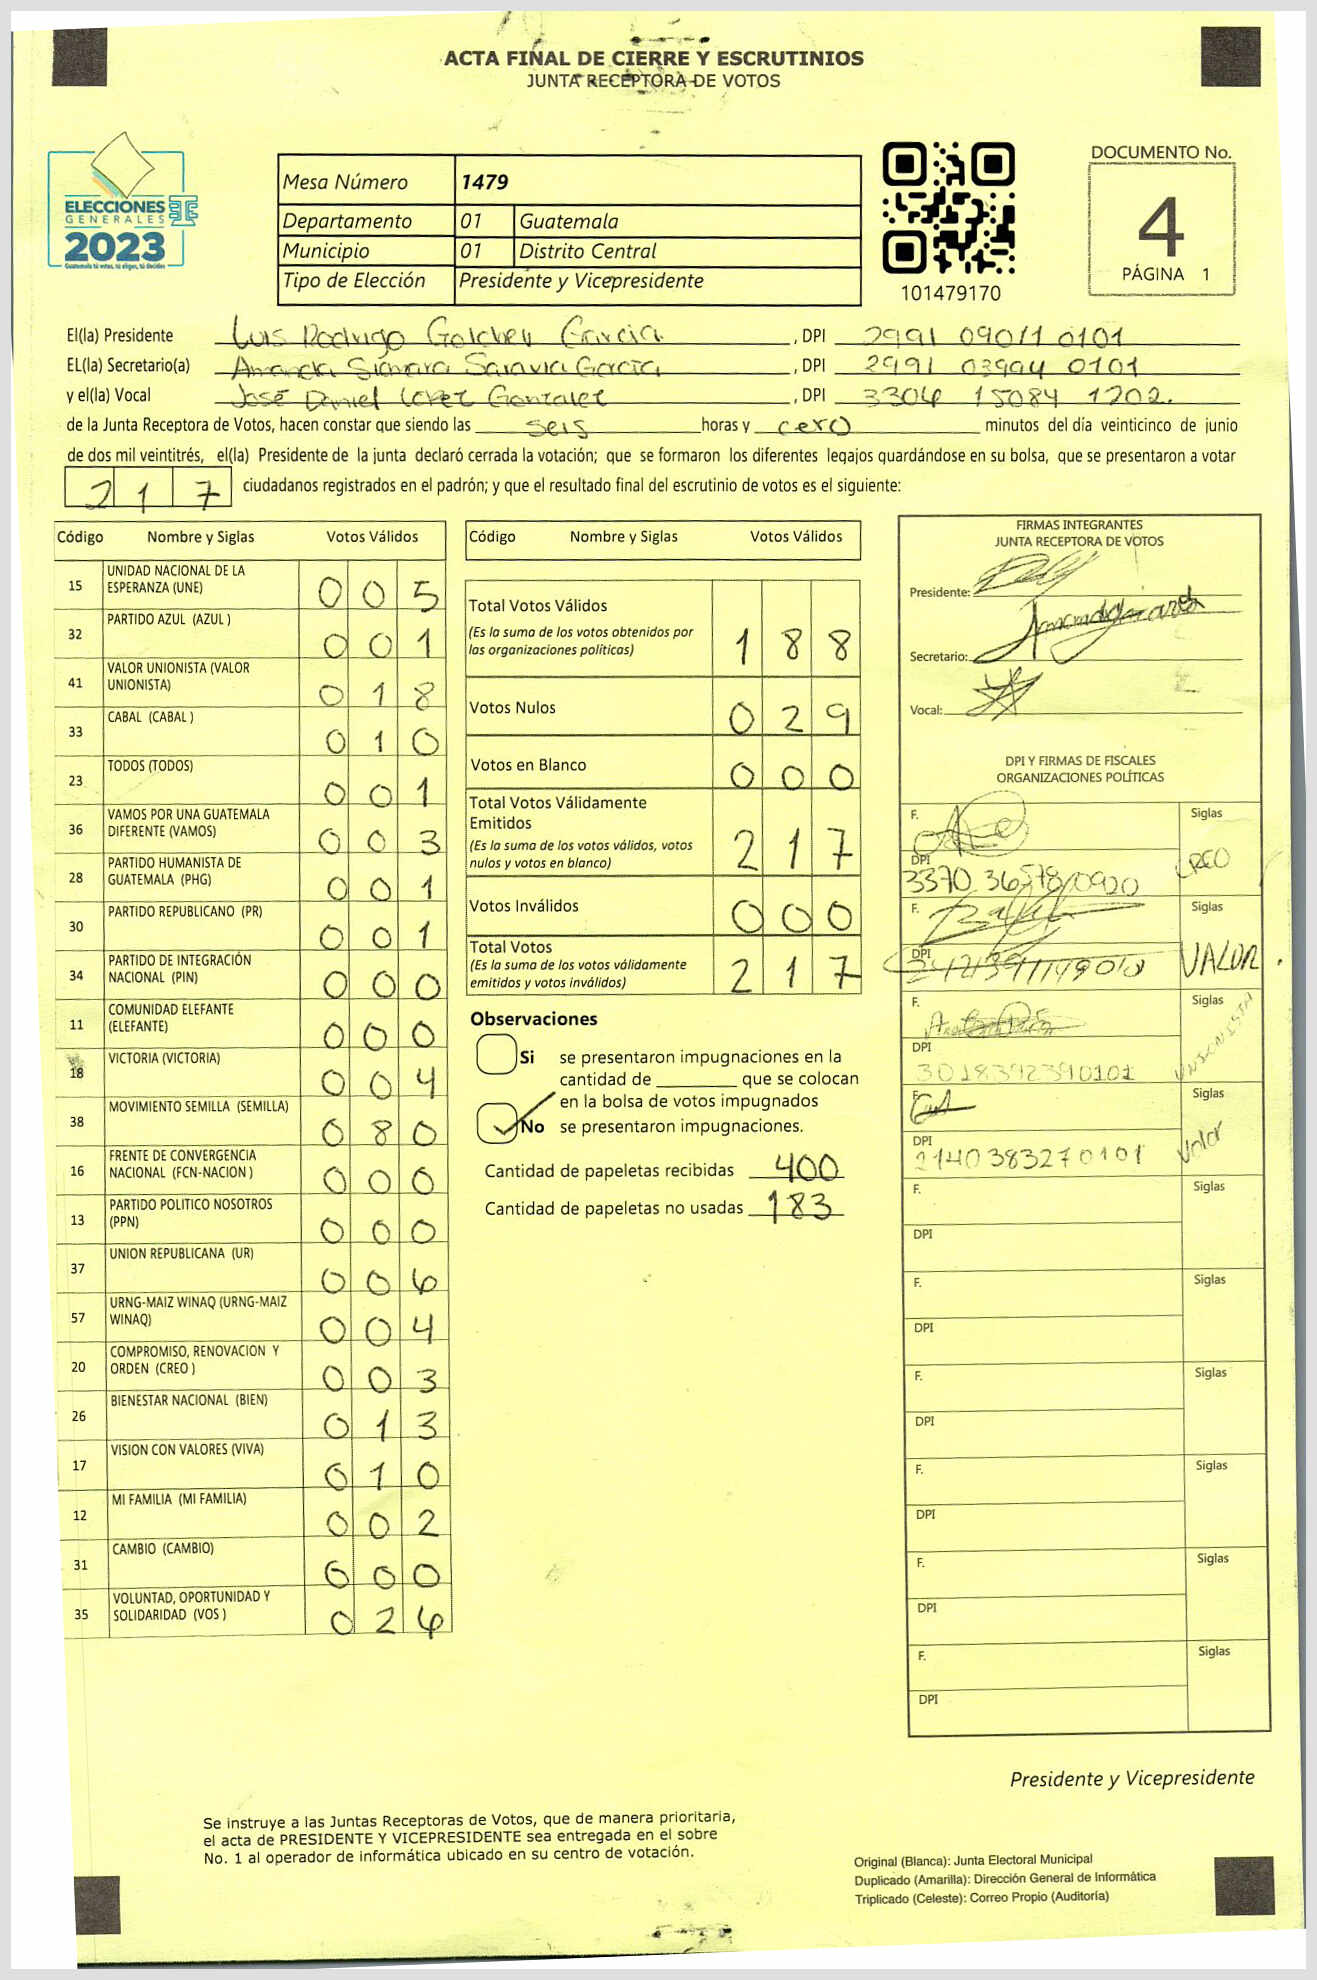 ACTA FINAL DE CIERRE Y ESCRUTINIOS
JUNTA RECEPTORA DE VOTOS
ELECCIONES
GENERALES
2023
Guatemala tú votas, tú eliges, tú decides
Mesa Número 1479
Departamento 01 Guatemala
Municipio 01 Distrito Central
Tipo de Elección Presidente y Vicepresidente
101479170
DOCUMENTO No.
4
PÁGINA 1
El(la) Presidente Luis Rodrigo García, DPI 2991 09011 0101
EL(la) Secretario(a) Amanda Siomara Saravia García, DPI 2991 03994 0101
y el(la) Vocal José Daniel López González, DPI 3304 15084 1202.
de la Junta Receptora de Votos, hacen constar que siendo las seis horas y cero minutos del día veinticinco de junio
de dos mil veintitrés, el(la) Presidente de la junta declaró cerrada la votación; que se formaron los diferentes legajos guardándose en su bolsa, que se presentaron a votar
217 ciudadanos registrados en el padrón; y que el resultado final del escrutinio de votos es el siguiente:
Código Nombre y Siglas Votos Válidos
15 UNIDAD NACIONAL DE LA ESPERANZA (UNE) 005
32 PARTIDO AZUL (AZUL ) 001
41 VALOR UNIONISTA (VALOR UNIONISTA) 018
33 CABAL (CABAL ) 010
23 TODOS (TODOS) 001
36 VAMOS POR UNA GUATEMALA DIFERENTE (VAMOS) 003
28 PARTIDO HUMANISTA DE GUATEMALA (PHG) 001
30 PARTIDO REPUBLICANO (PR) 001
34 PARTIDO DE INTEGRACIÓN NACIONAL (PIN) 000
11 COMUNIDAD ELEFANTE (ELEFANTE) 000
18 VICTORIA (VICTORIA) 004
38 MOVIMIENTO SEMILLA (SEMILLA) 080
16 FRENTE DE CONVERGENCIA NACIONAL (FCN-NACION ) 000
13 PARTIDO POLITICO NOSOTROS (PPN) 000
37 UNION REPUBLICANA (UR) 006
57 URNG-MAIZ WINAQ (URNG-MAIZ WINAQ) 004
20 COMPROMISO, RENOVACION Y ORDEN (CREO ) 003
26 BIENESTAR NACIONAL (BIEN) 013
17 VISION CON VALORES (VIVA) 010
12 MI FAMILIA (MI FAMILIA) 002
31 CAMBIO (CAMBIO) 000
35 VOLUNTAD, OPORTUNIDAD Y SOLIDARIDAD (VOS ) 026
Código Nombre y Siglas Votos Válidos
Total Votos Válidos 188
(Es la suma de los votos obtenidos por
las organizaciones políticas)
Votos Nulos 029
Votos en Blanco 000
Total Votos Válidamente
Emitidos 217
(Es la suma de los votos válidos, votos
nulos y votos en blanco)
Votos Inválidos 000
Total Votos 217
(Es la suma de los votos válidamente
emitidos y votos inválidos)
Observaciones
Si se presentaron impugnaciones en la
cantidad de ________ que se colocan
en la bolsa de votos impugnados
No se presentaron impugnaciones.
Cantidad de papeletas recibidas 400
Cantidad de papeletas no usadas 183
FIRMAS INTEGRANTES
JUNTA RECEPTORA DE VOTOS
Presidente:
Secretario:
Vocal:
DPI Y FIRMAS DE FISCALES
ORGANIZACIONES POLÍTICAS
F. Siglas
DPI CREO
3370 36578 0920
F. Siglas
DPI VALOR.
F. Siglas
DPI UNIONISTA
3018392390101
F. Siglas
DPI Valor
2140383270101
F. Siglas
DPI
F. Siglas
DPI
F. Siglas
DPI
F. Siglas
DPI
F. Siglas
DPI
F. Siglas
DPI
Presidente y Vicepresidente
Se instruye a las Juntas Receptoras de Votos, que de manera prioritaria,
el acta de PRESIDENTE Y VICEPRESIDENTE sea entregada en el sobre
No. 1 al operador de informática ubicado en su centro de votación.
Original (Blanca): Junta Electoral Municipal
Duplicado (Amarilla): Dirección General de Informática
Triplicado (Celeste): Correo Propio (Auditoría)